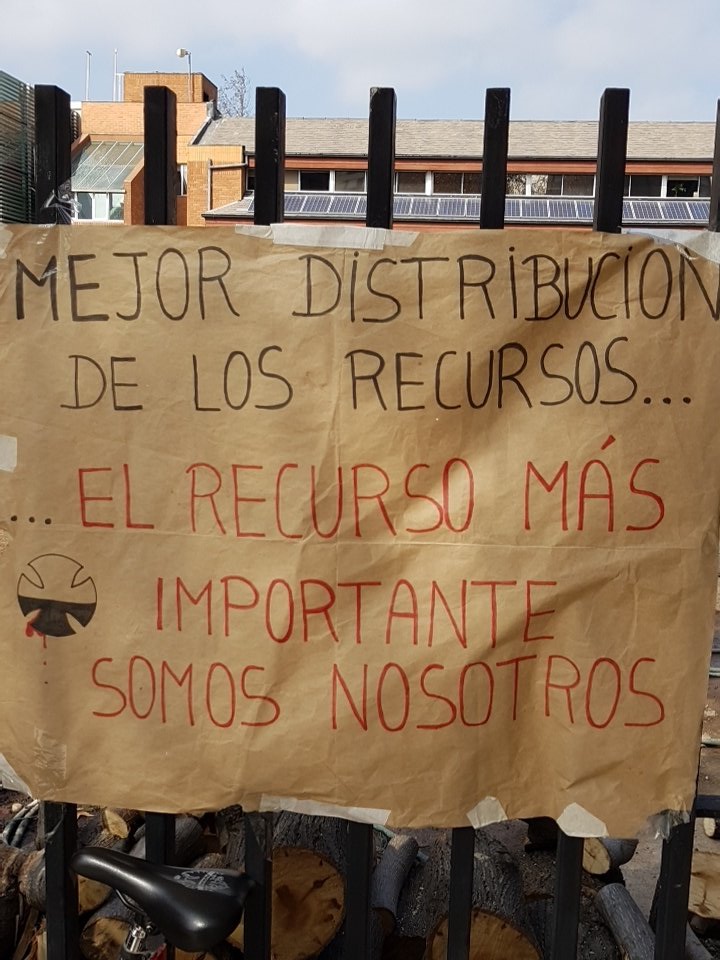 MEJOR DISTRIBUCION
DE LOS RECURSOS...
... EL RECURSO MÁS
IMPORTANTE
SOMOS NOSOTROS